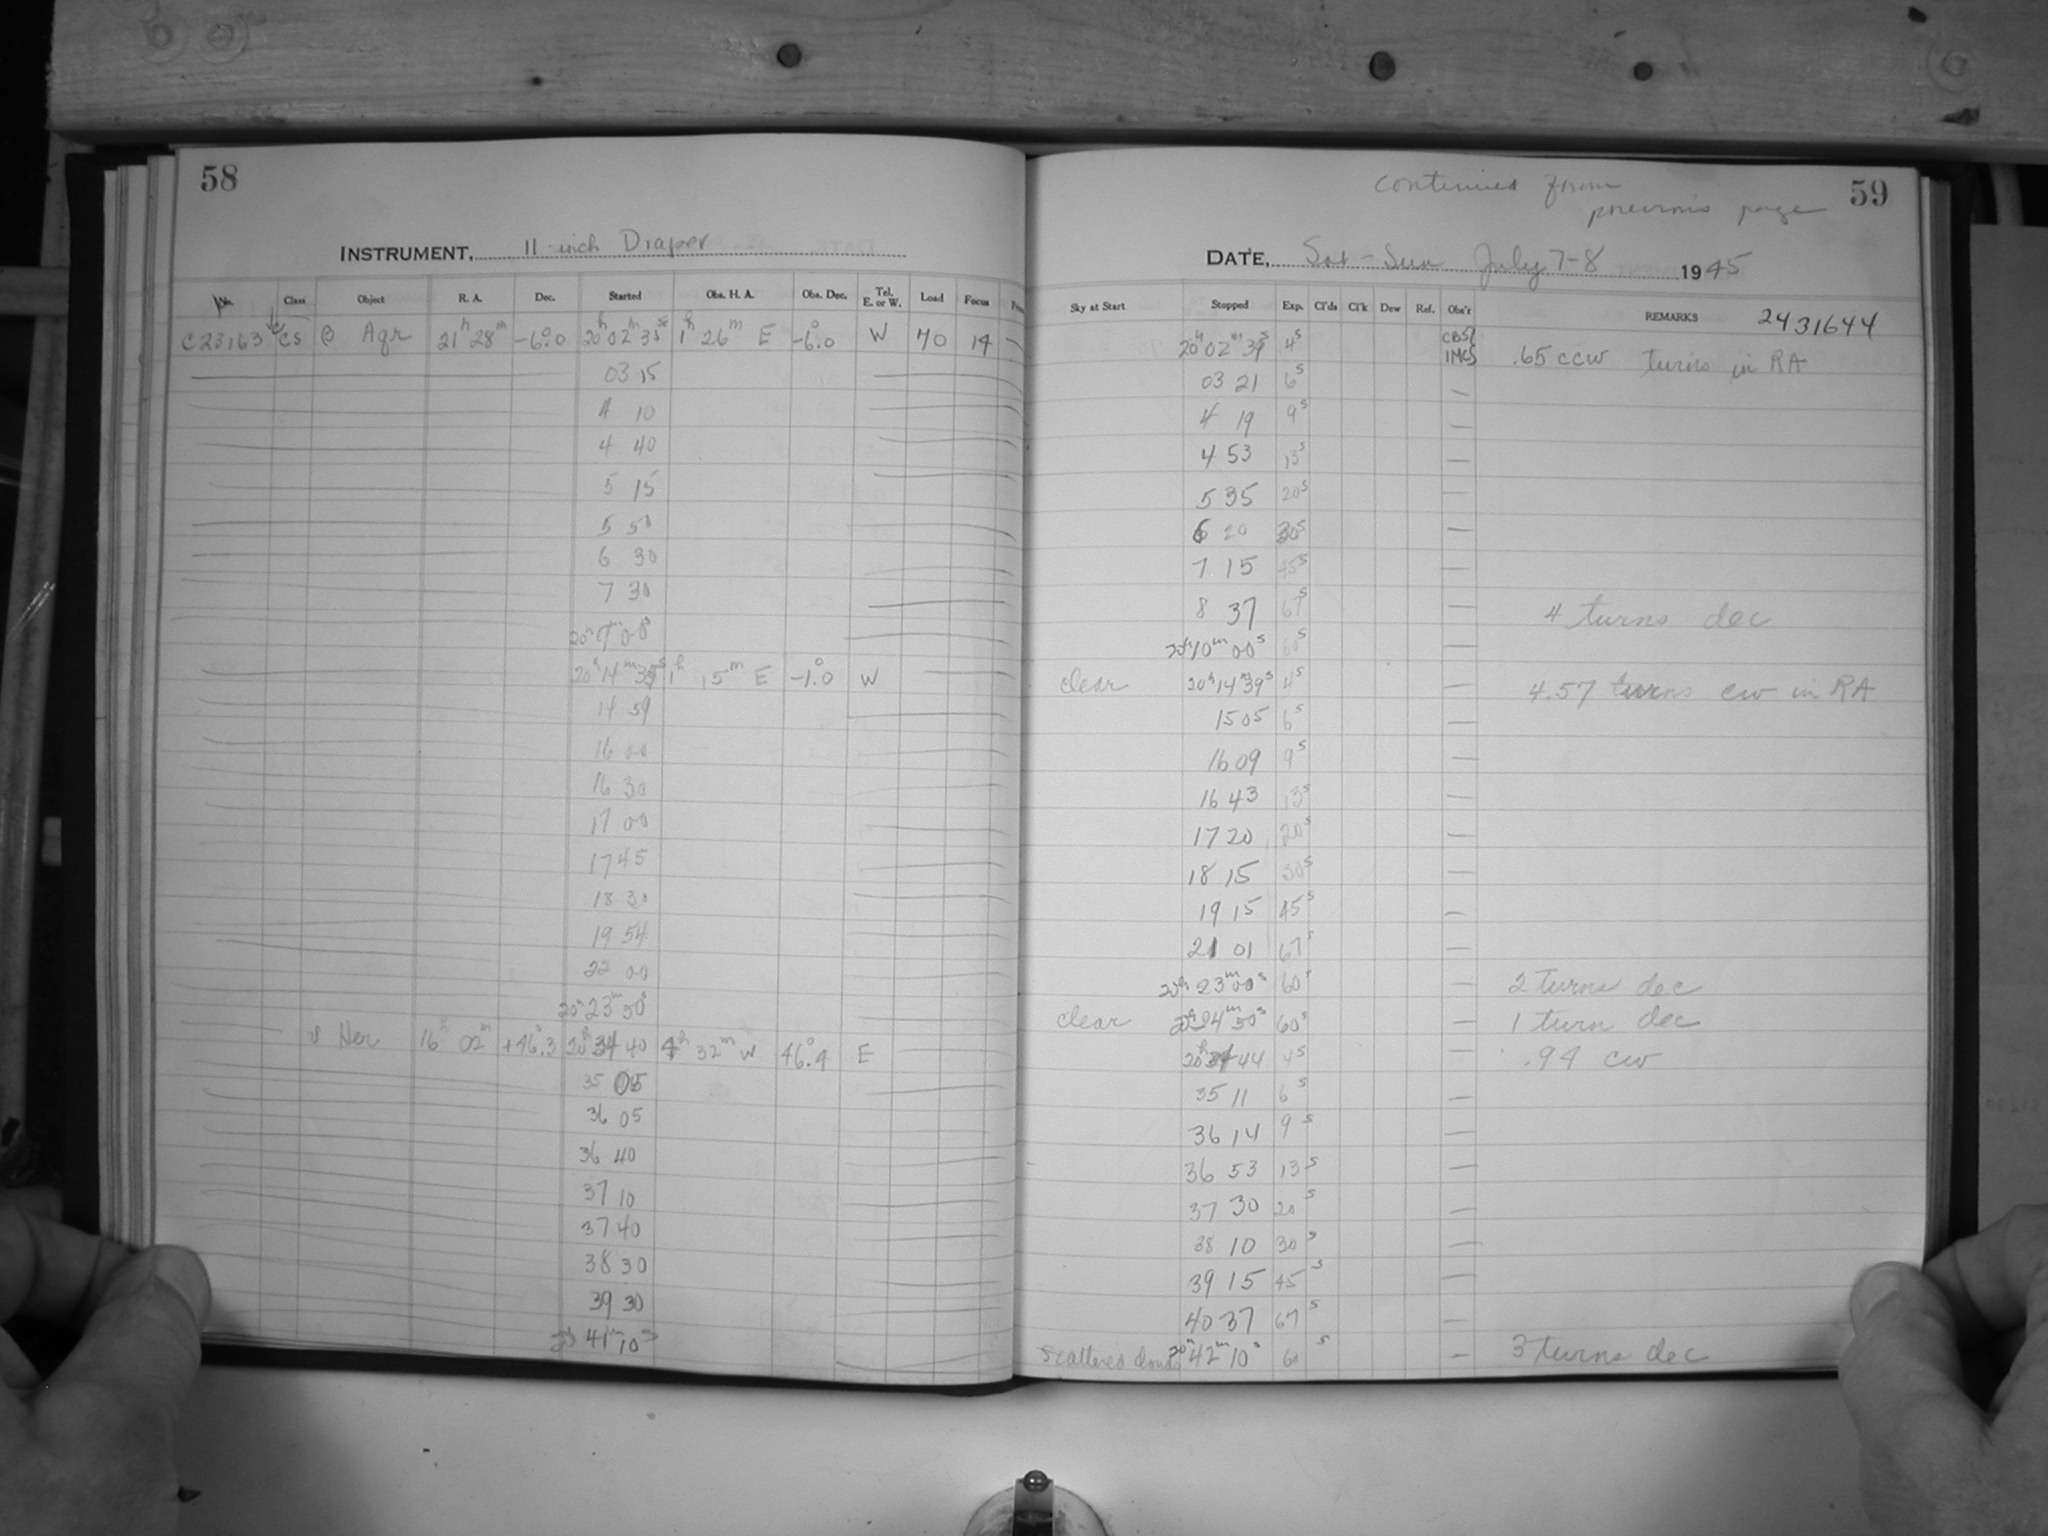 58
INSTRUMENT, 11 inch Draper
No. Class Object R. A. Dec. Started Obs. H. A. Obs. Dec. Tel. E. or W. Load Focus
C23163 CS β Aqr 21h 28m -6°.0 20h 02m 35s 1h 26m E -6°.0 W 70 14
03 15
4 10
4 40
5 15
5 50
6 30
7 30
20h 9m 00s
20h 14m 35s 1h 15m E -1°.0 W
14 59
16 00
16 30
17 00
17 45
18 30
19 54
22 00
20h 23m 50s
υ Her 16h 02m +46°.3 20h 34 40 4h 32m W 46°.4 E
35 05
36 05
36 40
37 10
37 40
38 30
39 30
20h 41m 10s
continued from 59
previous page
DATE, Sat - Sun July 7-8 1945
Sky at Start Stopped Exp. Cl'ds Cl'k Dew Ref. Obs'r REMARKS 2431644
20h 02m 39s 4s CBS/ .65 ccw turns in RA
IMCS
03 21 6s —
4 19 9s —
4 53 13s —
5 35 20s —
6 20 30s —
7 15 45s —
8 37 67s — 4 turns dec
20h 10m 00s 60s —
clear 20h 14m 39s 4s — 4.57 turns cw in RA
15 05 6s —
16 09 9s —
16 43 13s —
17 20 20s —
18 15 30s —
19 15 45s —
21 01 67s —
20h 23m 00s 60s — 2 turns dec
clear 20h 24m 50s 60s — 1 turn dec
20h 34 44 4s — .94 cw
35 11 6s —
36 14 9s —
36 53 13s —
37 30 20s —
38 10 30s —
39 15 45s —
40 37 67s —
scattered clouds 20h 42m 10s 60s — 3 turns dec